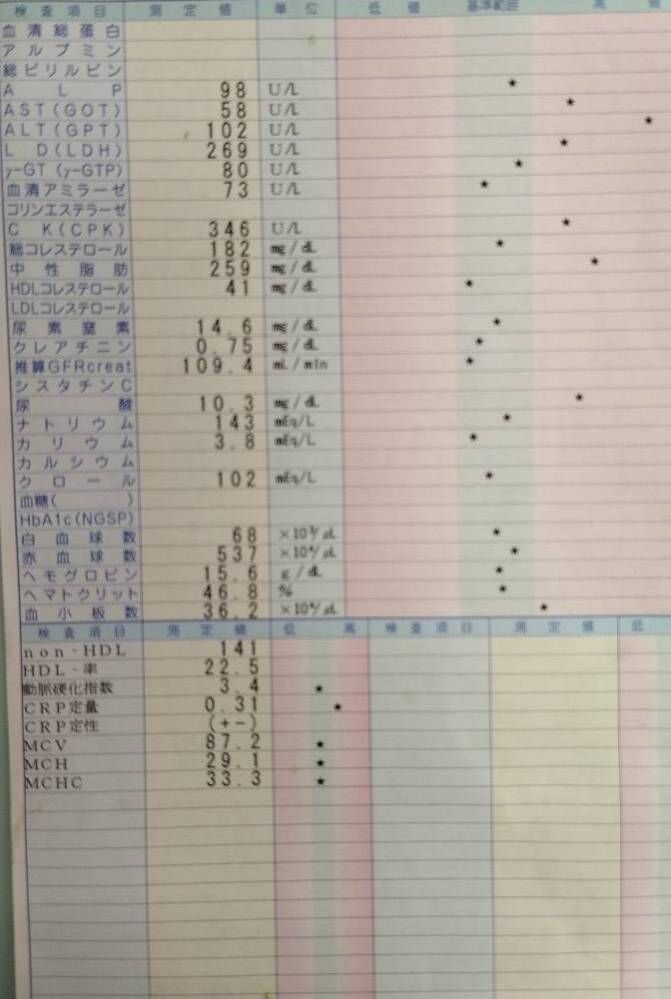 検査項目 測定値 単位 低値 基準範囲 高値
血清総蛋白
アルブミン
総ビリルビン
ALP 98 U/L ★
AST(GOT) 58 U/L ★
ALT(GPT) 102 U/L ★
LD(LDH) 269 U/L ★
γ-GT(γ-GTP) 80 U/L ★
血清アミラーゼ 73 U/L ★
コリンエステラーゼ
CK(CPK) 346 U/L ★
総コレステロール 182 mg/dL ★
中性脂肪 259 mg/dL ★
HDLコレステロール 41 mg/dL ★
LDLコレステロール
尿素窒素 14.6 mg/dL ★
クレアチニン 0.75 mg/dL ★
推算GFRcreat 109.4 mL/min ★
シスタチンC
尿酸 10.3 mg/dL ★
ナトリウム 143 mEq/L ★
カリウム 3.8 mEq/L ★
カルシウム
クロール 102 mEq/L ★
血糖( )
HbA1c(NGSP)
白血球数 68 ×10²/μL ★
赤血球数 537 ×10⁴/μL ★
ヘモグロビン 15.6 g/dL ★
ヘマトクリット 46.8 % ★
血小板数 36.2 ×10⁴/μL ★
検査項目 測定値 低 高 検査項目 測定値 低
non-HDL 141
HDL-率 22.5
動脈硬化指数 3.4 ★
CRP定量 0.31 ★
CRP定性 (+-)
MCV 87.2 ★
MCH 29.1 ★
MCHC 33.3 ★